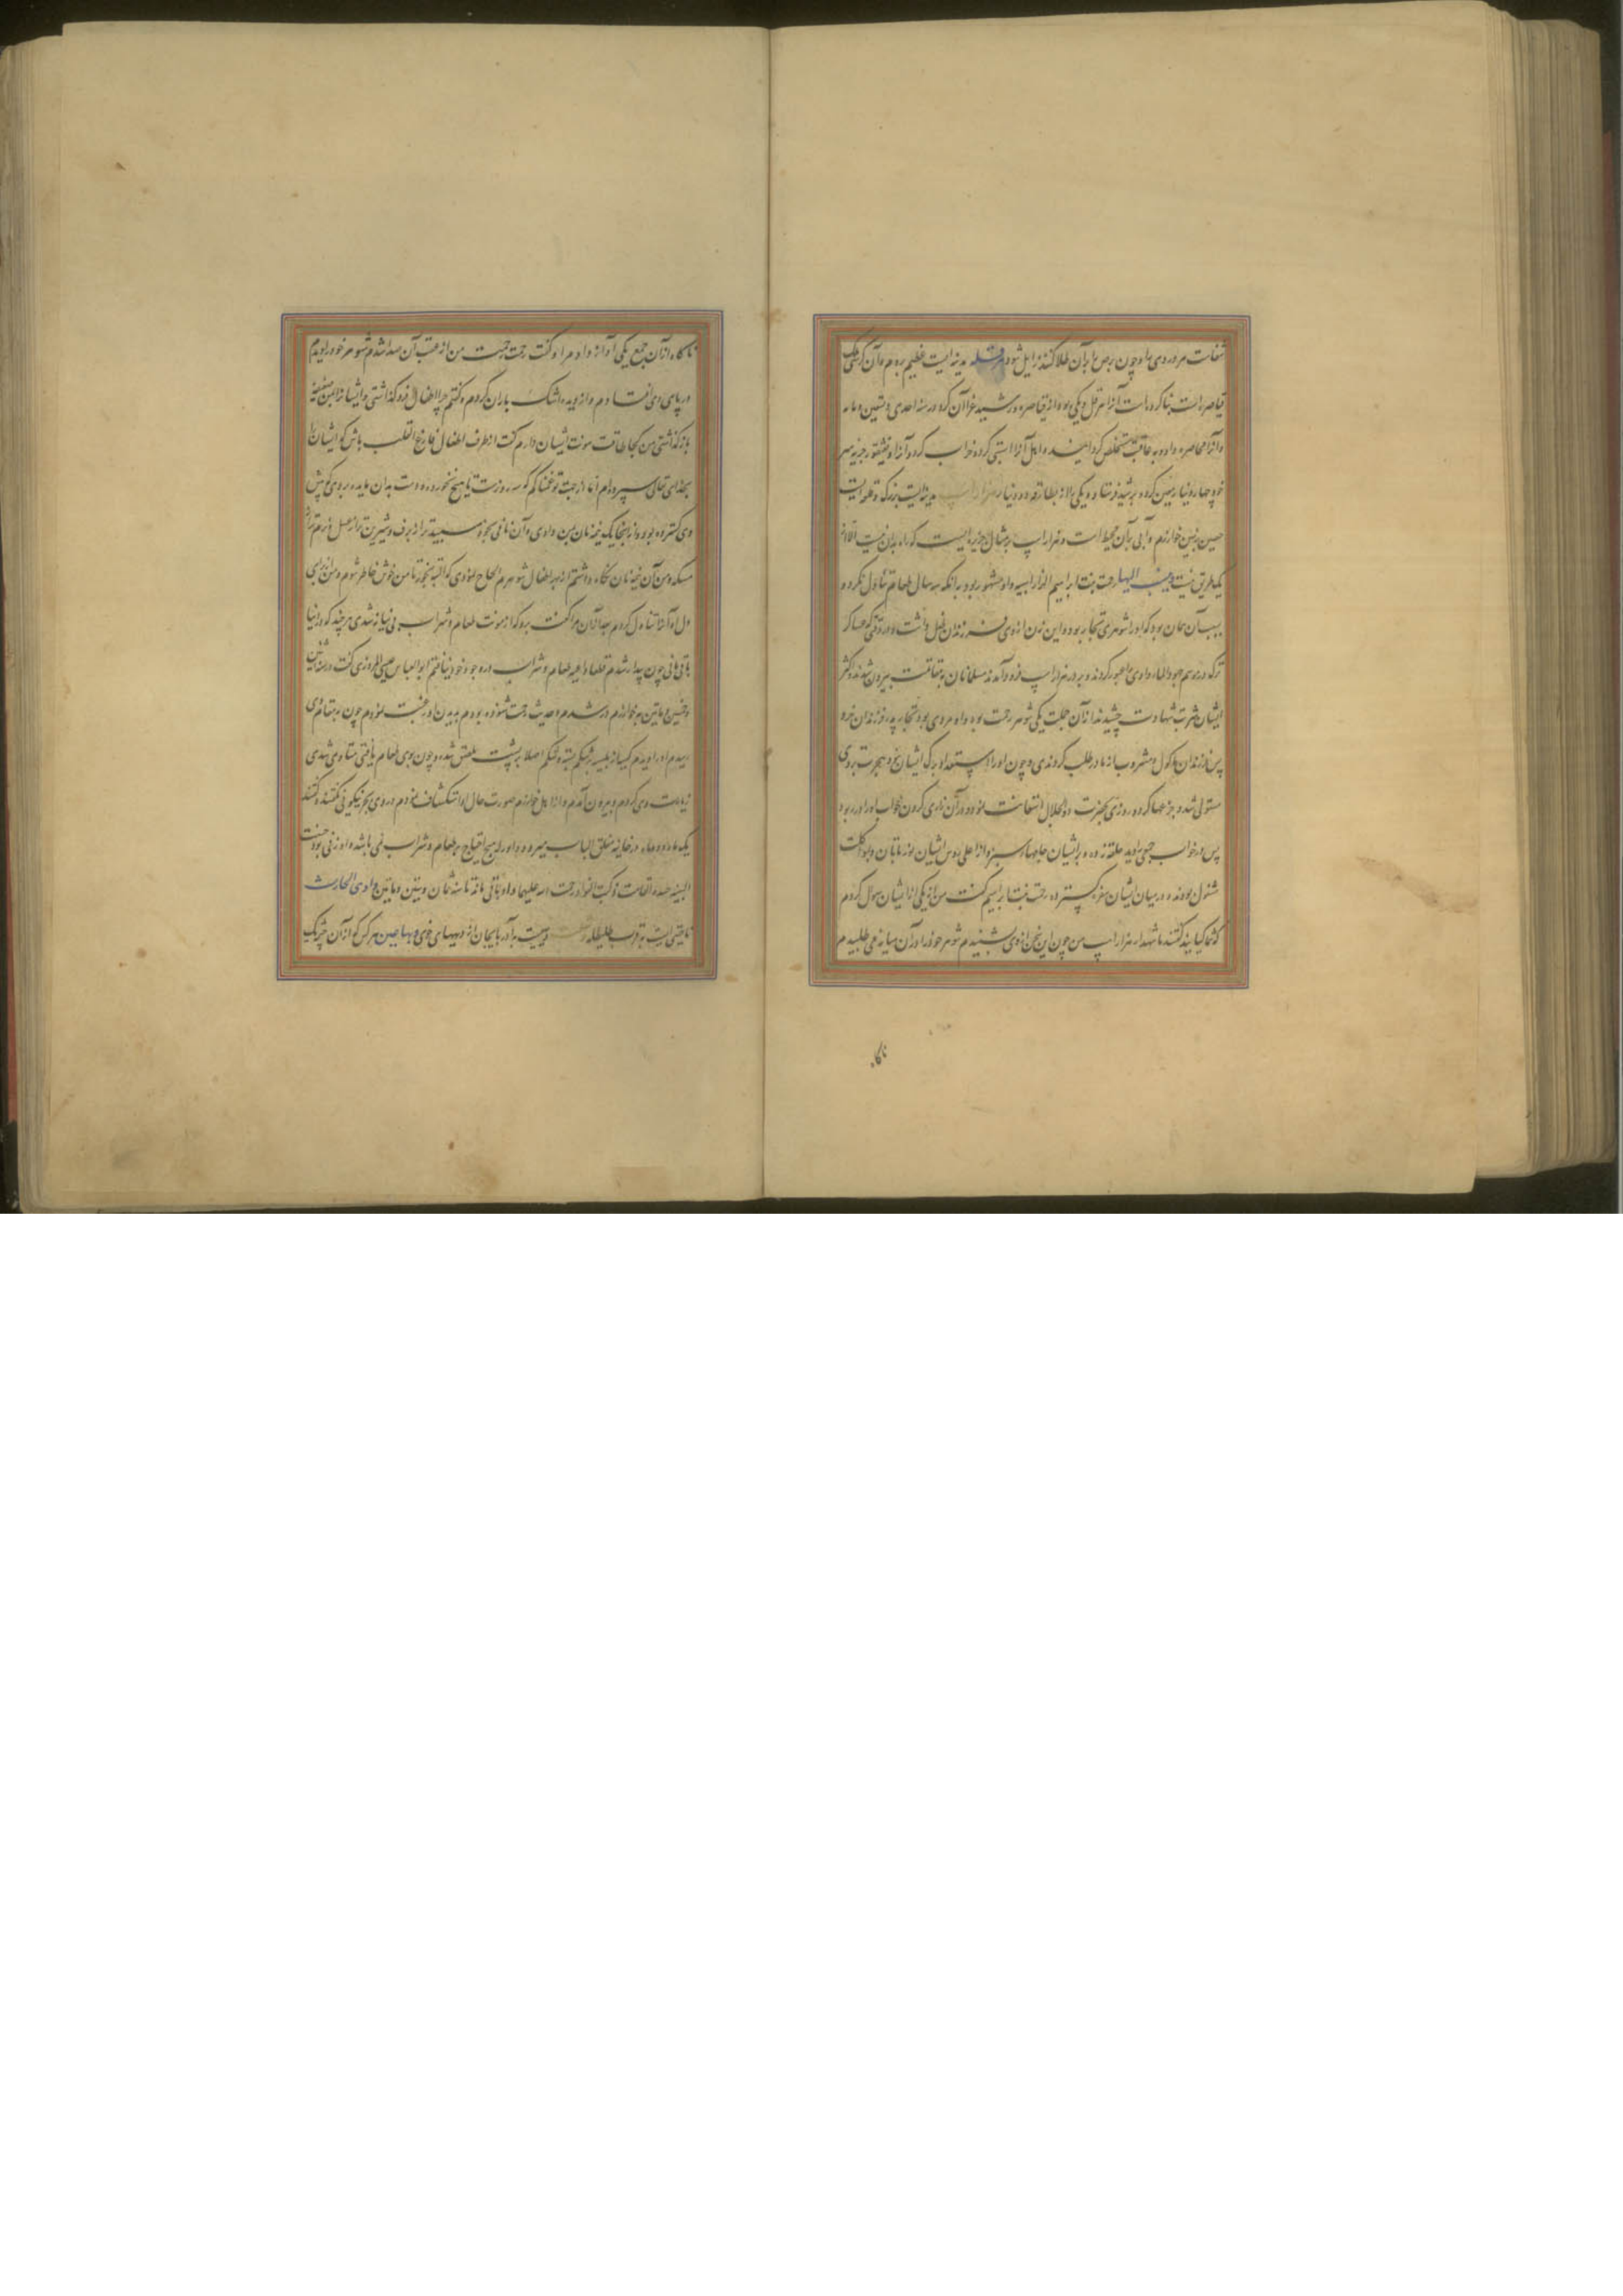 شفات مر و روی را و چون برص را بر آن طلا کنند زایل شود هرقله مدینه ایست عظیم بروم و آن کرسی ملک
قیاصره است بنا کرده است آنرا هرقل و یکی بوده از قیاصره و رشید غزا آن کرد در سنه احدی و تسعین و مایه
و آنرا محاصره داد و به عاقبت مستخلص کردانید و اهل آنرا سبی کرده خراب کرد و آنرا و نقفور جزیه سر
خود چهار دینار معین کرده بر شید فرستاد و یکی را از بطارقه دو دینار هزار اسب مدینه ایست بزرک و قلعه ایست
حصین بزمین خوارزم و آبی بر آن محیط است و هزار اسپ بر مثال جزیره ایست که راه بدان نیست الا از
یک طریق نیست وینسب الیها رحمت بنت ابراهیم الهزار اسبیه و او مشهور بود به انکه سه سال طعام تناول نکرد و
سبب آن همان بود که او را شوهری نجار بود و این زن از وی فرزندان طفل داشت و در وقتی که عساکر
ترک در موسم جمود الماء وادی را عبور کردند و بر در هزار اسپ فرود آمدند مسلمانان به مقاتلت بیرون شدند و اکثر
ایشان شربت شهادت چشیدند از آن جملت یکی شوهر رحمت بود و او مردی بود نجار پدر فرزندان خرد
پس فرزندان ماکول و مشروب از مادر طلب کردندی و چون او را استعداد برک ایشان نبود حیرت بر وی
مستولی شد و جزعها کرده روزی بحضرت ذو الجلال استغاثت نمود و در آن زاری کردن خواب او را در ربود
پس در خواب جمعی را دید حلقه زده و بر ایشان جامهاء سبز و از اعلی رؤس ایشان نور تابان و بواکلت
مشغول بودند و در میان ایشان سفره کسترده رحمت بنت ابراهیم کفت من از یکی از ایشان سوال کردم
که شما کیانید کفتند ما شهداء هزار اسپ من چون این سخن از وی شنیدم شوهر خود را در آن میانه می طلبیدم
ناکاه
ناکاه از آن جمع یکی آواز داد مرا و کفت رحمت رحمت من از عقب آن صدا شدم شوهر خود را دیدم
در پای وی افتادم و از دیده اشک باران کردم و کفتم چرا اطفال فرو کذاشتی و ایشانرا بمن ضعیفه
باز کذاشتی من کجا طاقت مونت ایشان دارم کفت از طرف اطفال فارغ القلب باش که ایشان را
بخدای تعالی سپرده ام اما از جهت تو غمناکم که سه روزست تا هیچ نخورده دست بدان مایده بر روی که پیش
وی کسترده بود و از انجا یک نیمه نان بمن داد و آن نانی بود سپیدتر از برف و شیرین تر از عسل و نرم تر از
مسکه و من آن نیمه نان نکاه داشتم از بهر اطفال شوهرم الحاح نمودی که البته بخور تا من خوش خاطر شوم و من از بی
دلی آنرا تناول کردم بعد از آن مرا کفت برو که از مونت طعام و شراب بی نیاز شدی هر چند که در دنیا
باقی مانی چون بیدار شدم قطعا داعیه طعام و شراب در وجود خود نیافتم ابو العباس عیسی المروزی کفت در سنه اثنین
و خمسین و ماتین به خوارزم در شدم و حدیث رحمت شنوده بودم بدیدن او رغبت نمودم چون به مقام وی
رسیدم او را دیدم کیسه از پلیسه بر شکم بسته و شکم اصلا به پشت ملصق شده و چون بوی طعام یافتی متاذی شدی
زیارت وی کردم و بیرون آمدم و از اهل خوارزم صورت حال او استکشاف نمودم در وی بجز نیکویی نکفتند و کفتند
یک ماه دو ماه در خانه مغلق الباب میبرد و او را به هیچ احتیاج به طعام و شراب نمی باشد و او زنی بود حسنت
السیره حمیده الخصلت و کتب النوادر رحمت الله علیها و او باقی ماند تا سنه ثمان و ستین و ماتین وادی الحارث
ناحیتی است به قرب طلیطله و دهیست به آذربایجان از دیههای خوی و بها حصین هر کس که از آن چریک